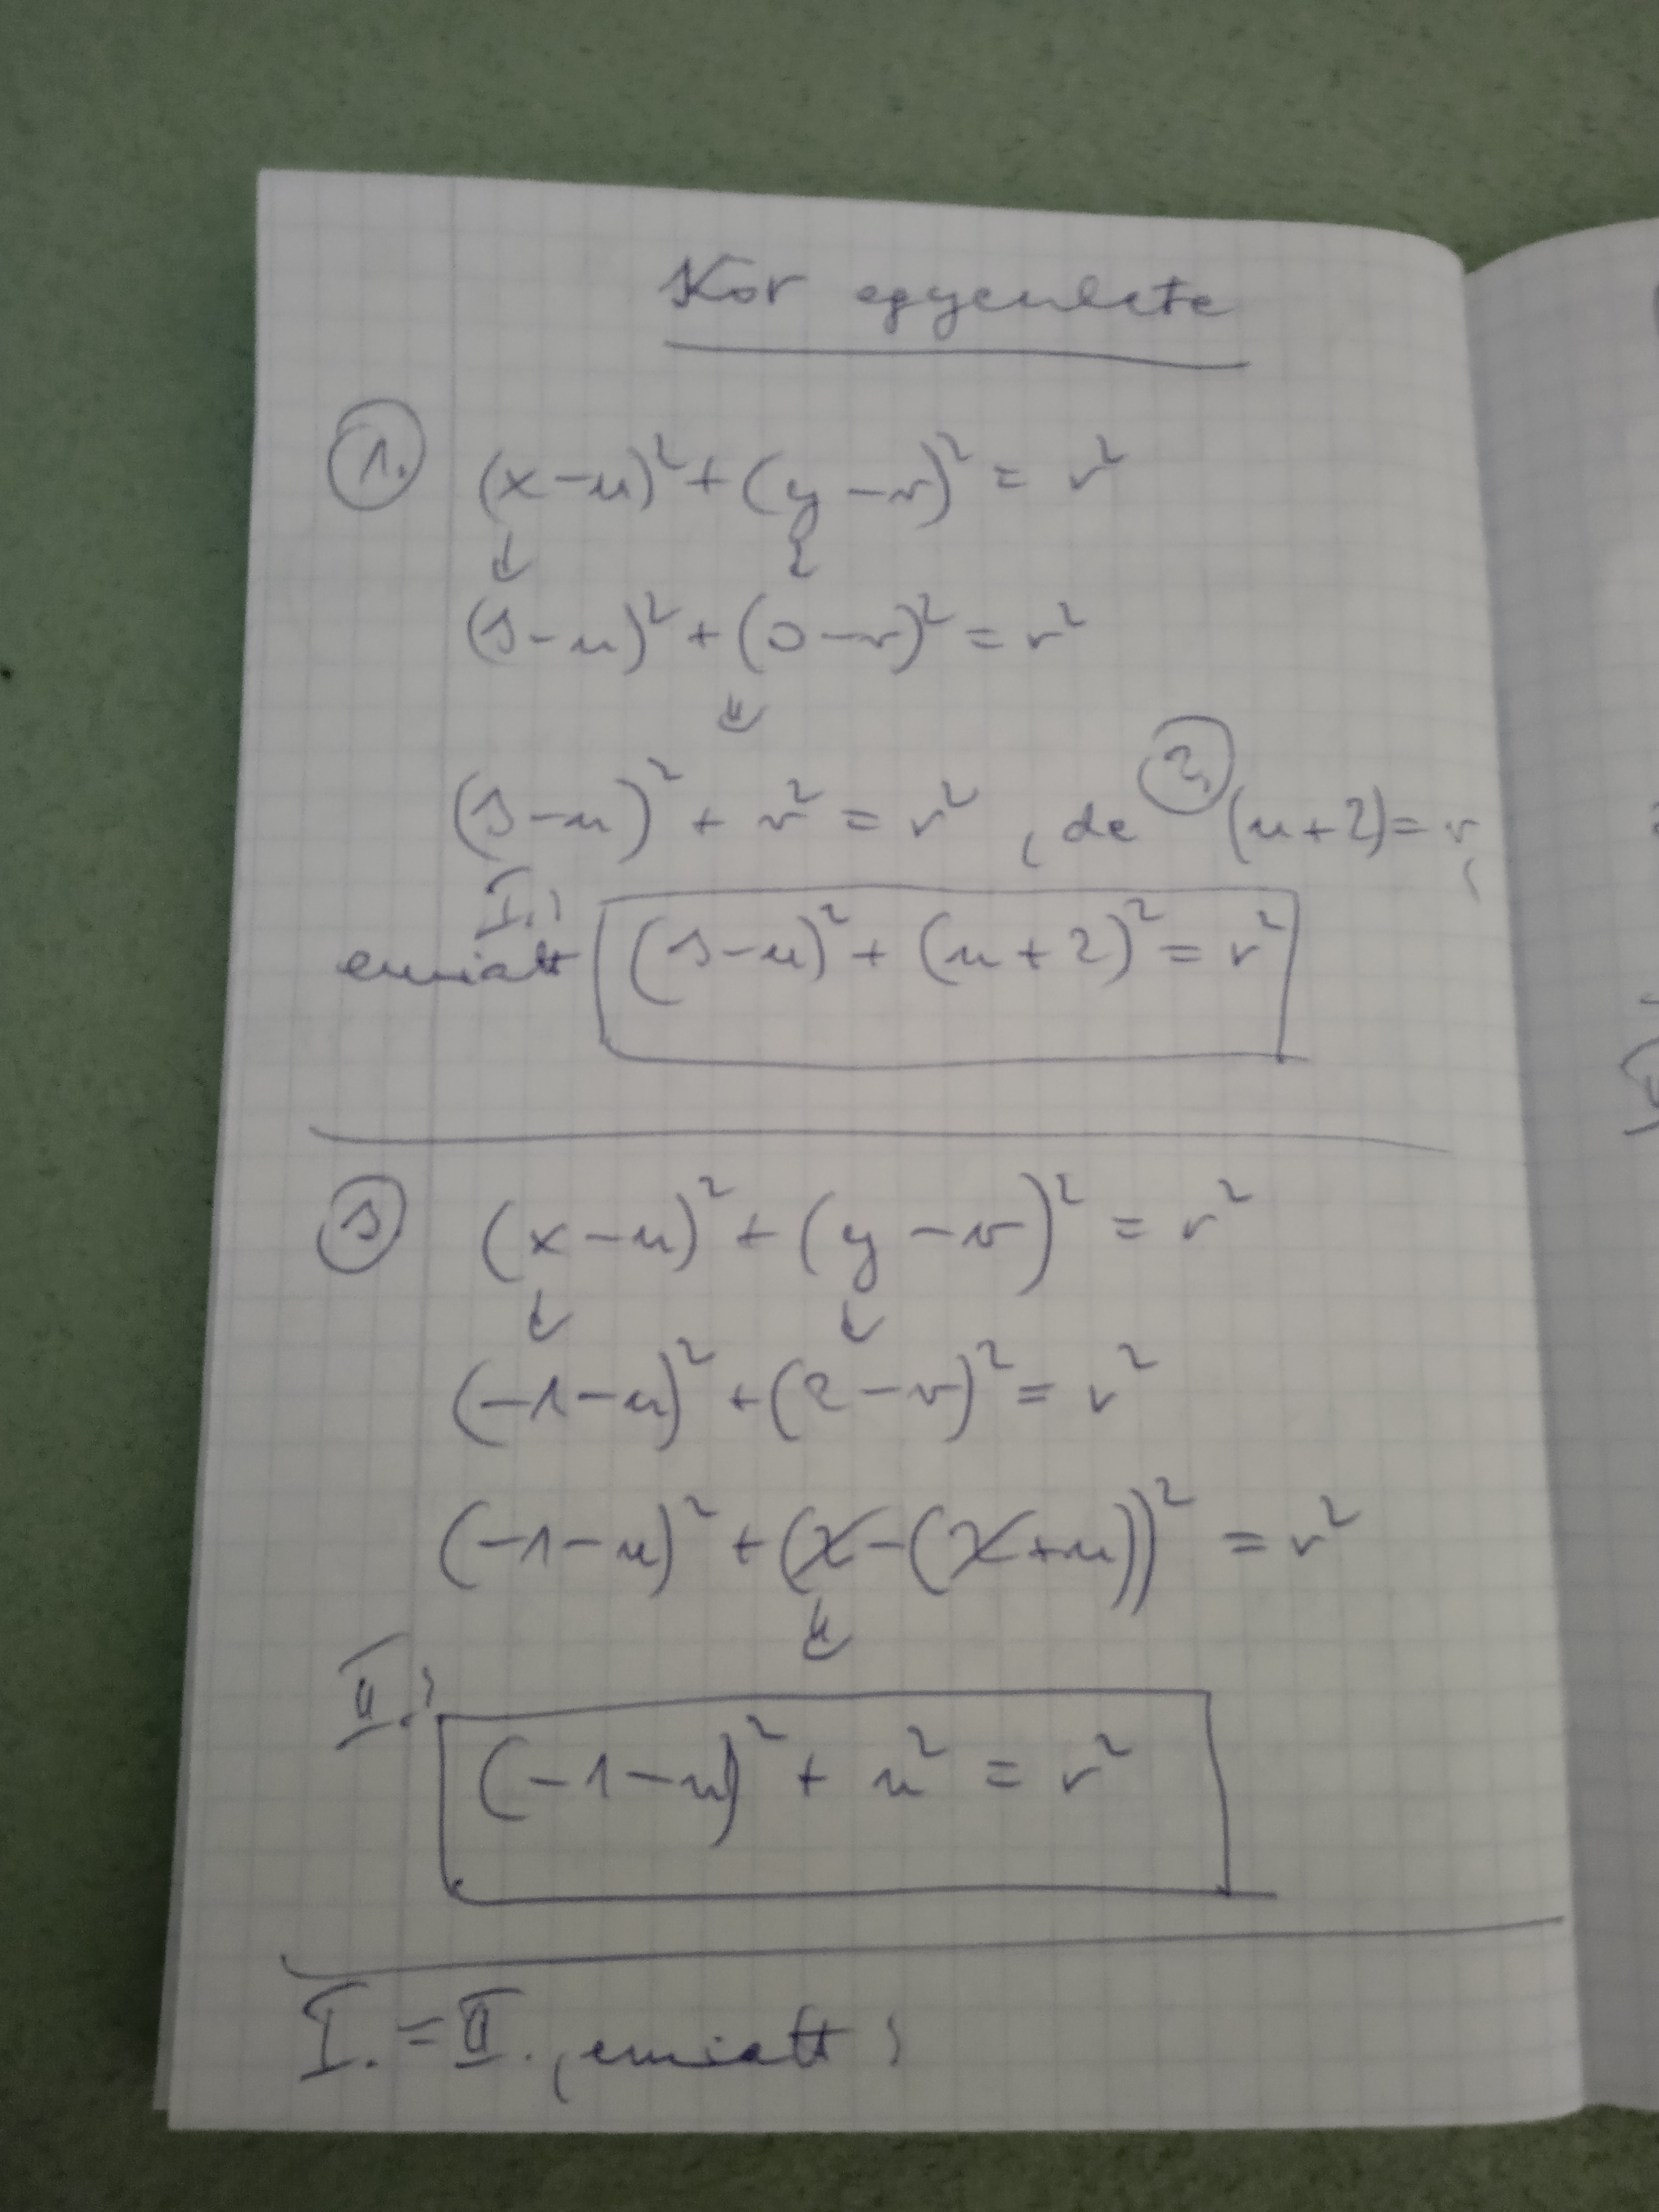 Kör egyenlete
1. (x-u)²+(y-v)²= r²
(3-u)²+(0-v)²=r²
(3-u)²+ v²= r², de 2, (u+2)=v,
I.)
emiatt (3-u)²+(u+2)²=r²
3 (x-u)²+(y-v)²=r²
(-1-u)²+(2-v)²=r²
(-1-u)²+(2-(2+u))²=r²
II.)
(-1-u)²+u²=r²
I.=II., emiatt: